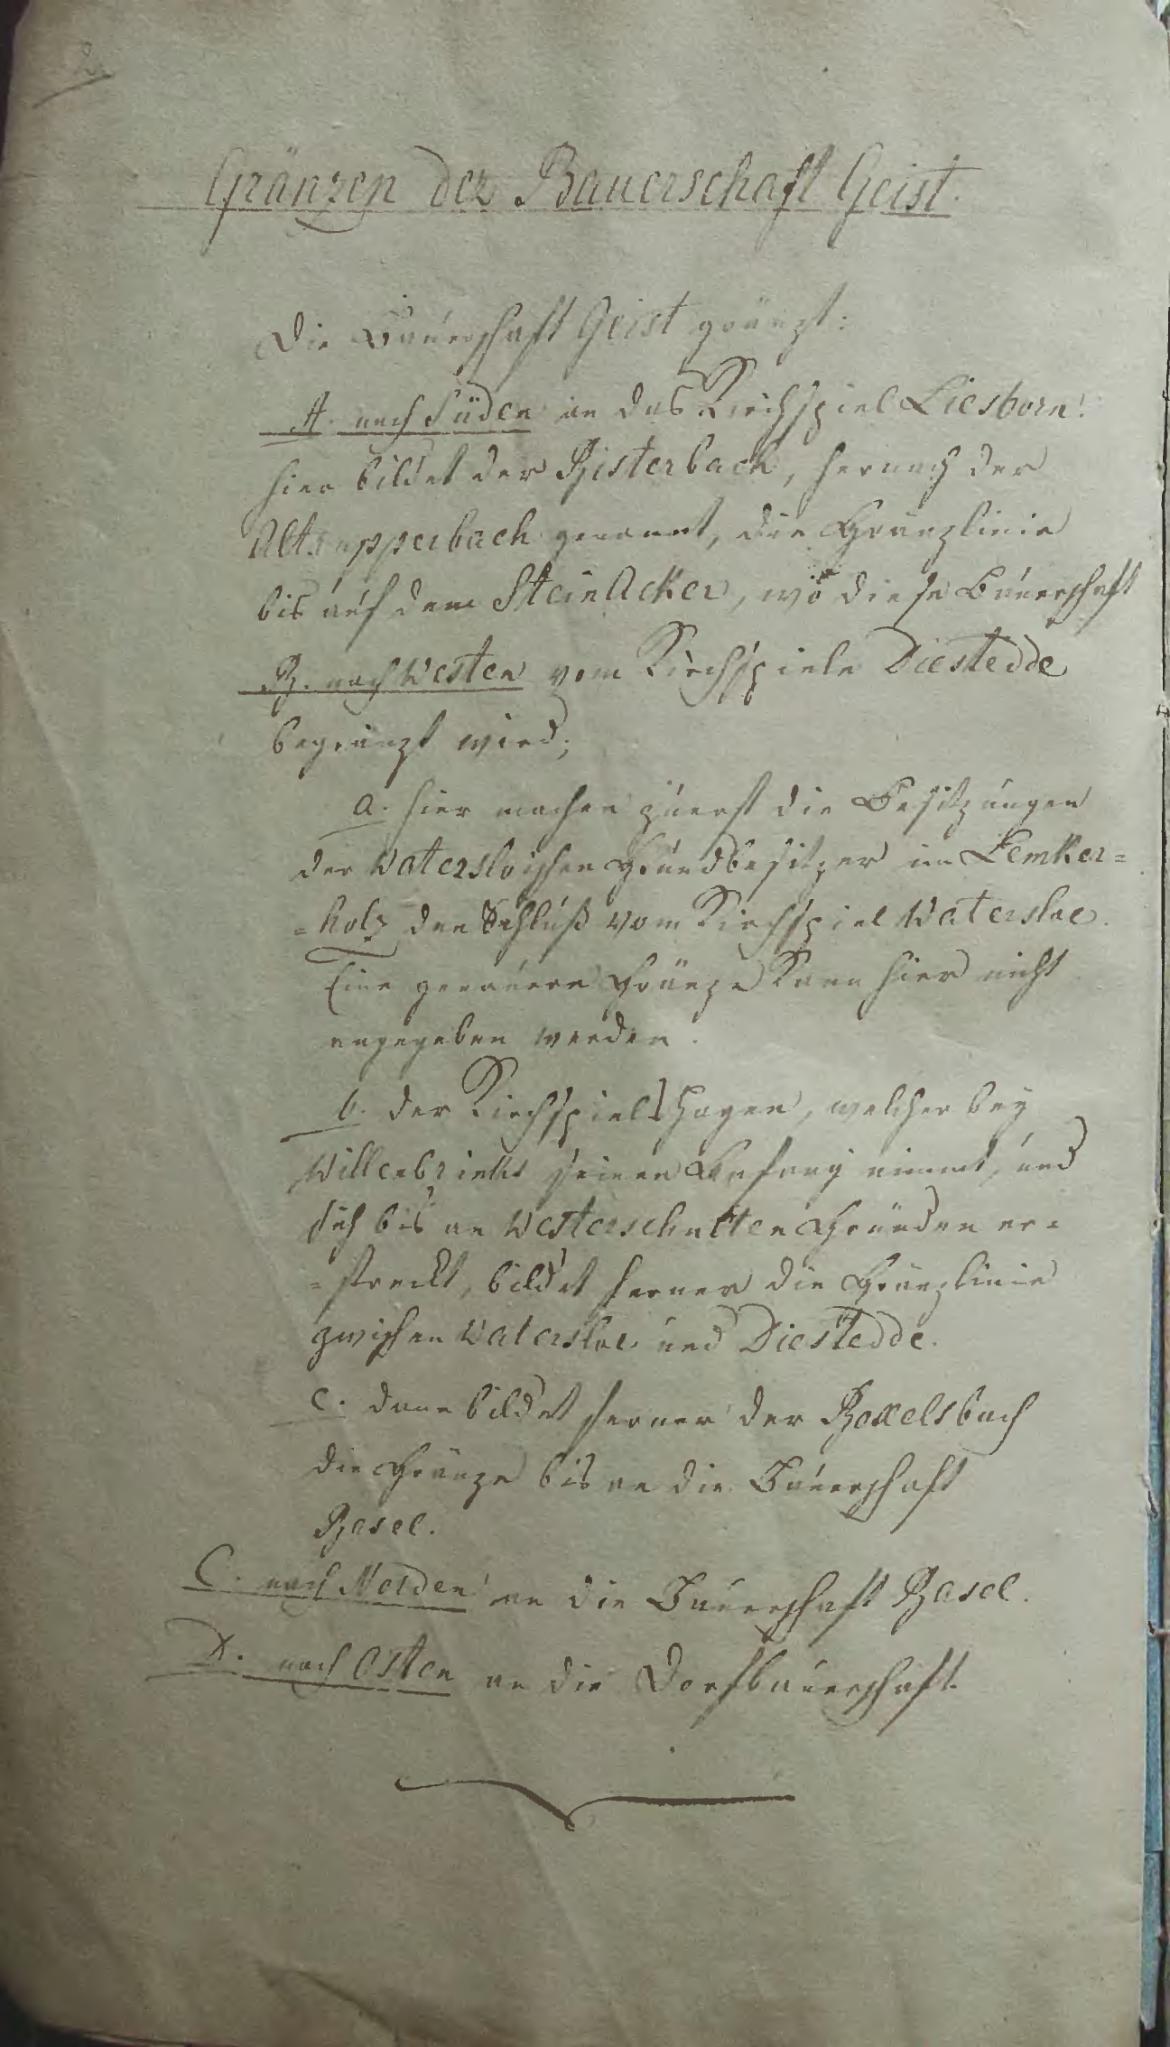 2.
Gränzen der Bauerschaft Geist.
Die Bauerschaft Geist gränzt:
A. nach Süden an das Kirchspiel Liesborn:
hier bildet der Bisterbach, hernach der
Altknapperbach genannt, die Gränzlinie
bis auf dem SteinAcker, wo diese Bauerschaft
B. nach Westen vom Kirchspiele Diestedde
begränzt wird;
a. hier machen zuerst die Besitzungen
der Watersloischen Grundbesitzer im Lemker=
=holz den Schluß vom Kirchspiel Watersloe.
Eine genauere Gränze kann hier nicht
angegeben werden.
b. der Kirchspiels Hagen, welcher bey
Willenbrinks seinen Anfang nimmt, und
sich bis an Westerschulten Gründen er=
=streckt, bildet ferner die Gränzlinie
zwischen Watersloe und Diestedde.
c. dann bildet ferner der Boxelsbach
die Gränze bis an die Bauerschaft
Basel.
C. nach Norden an die Bauerschaft Basel.
D. nach Osten an die Dorfbauerschaft.